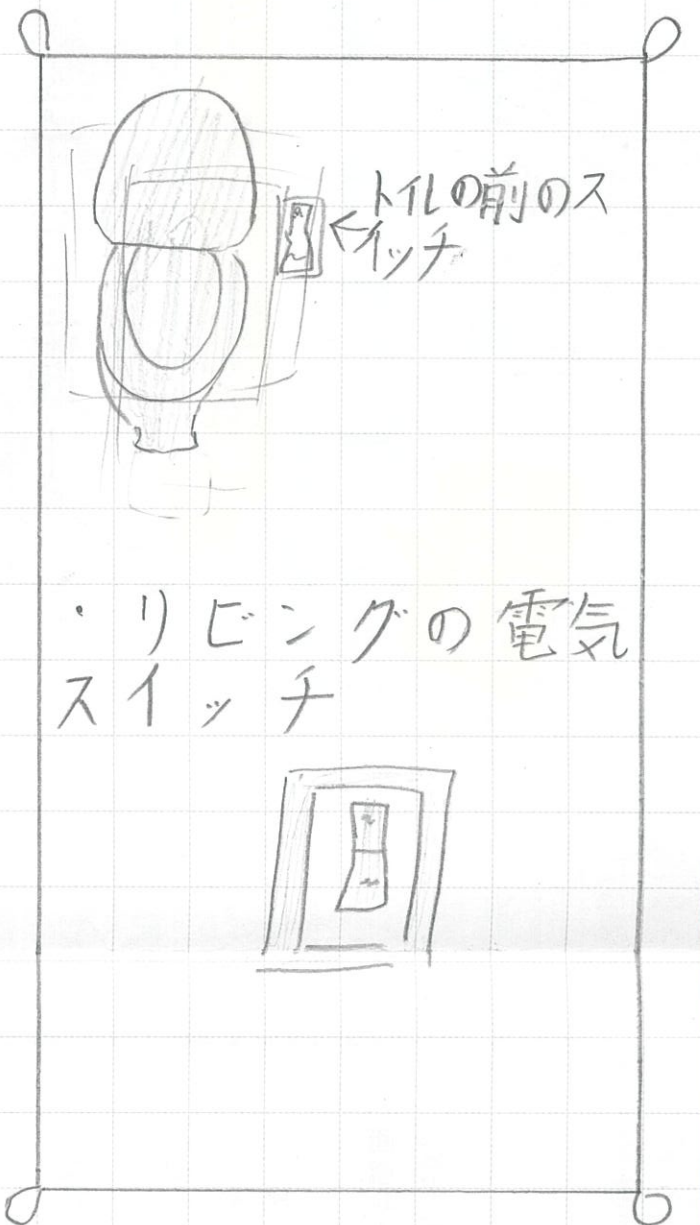 ←トイレの前のス
イッチ
・リビングの電気
スイッチ